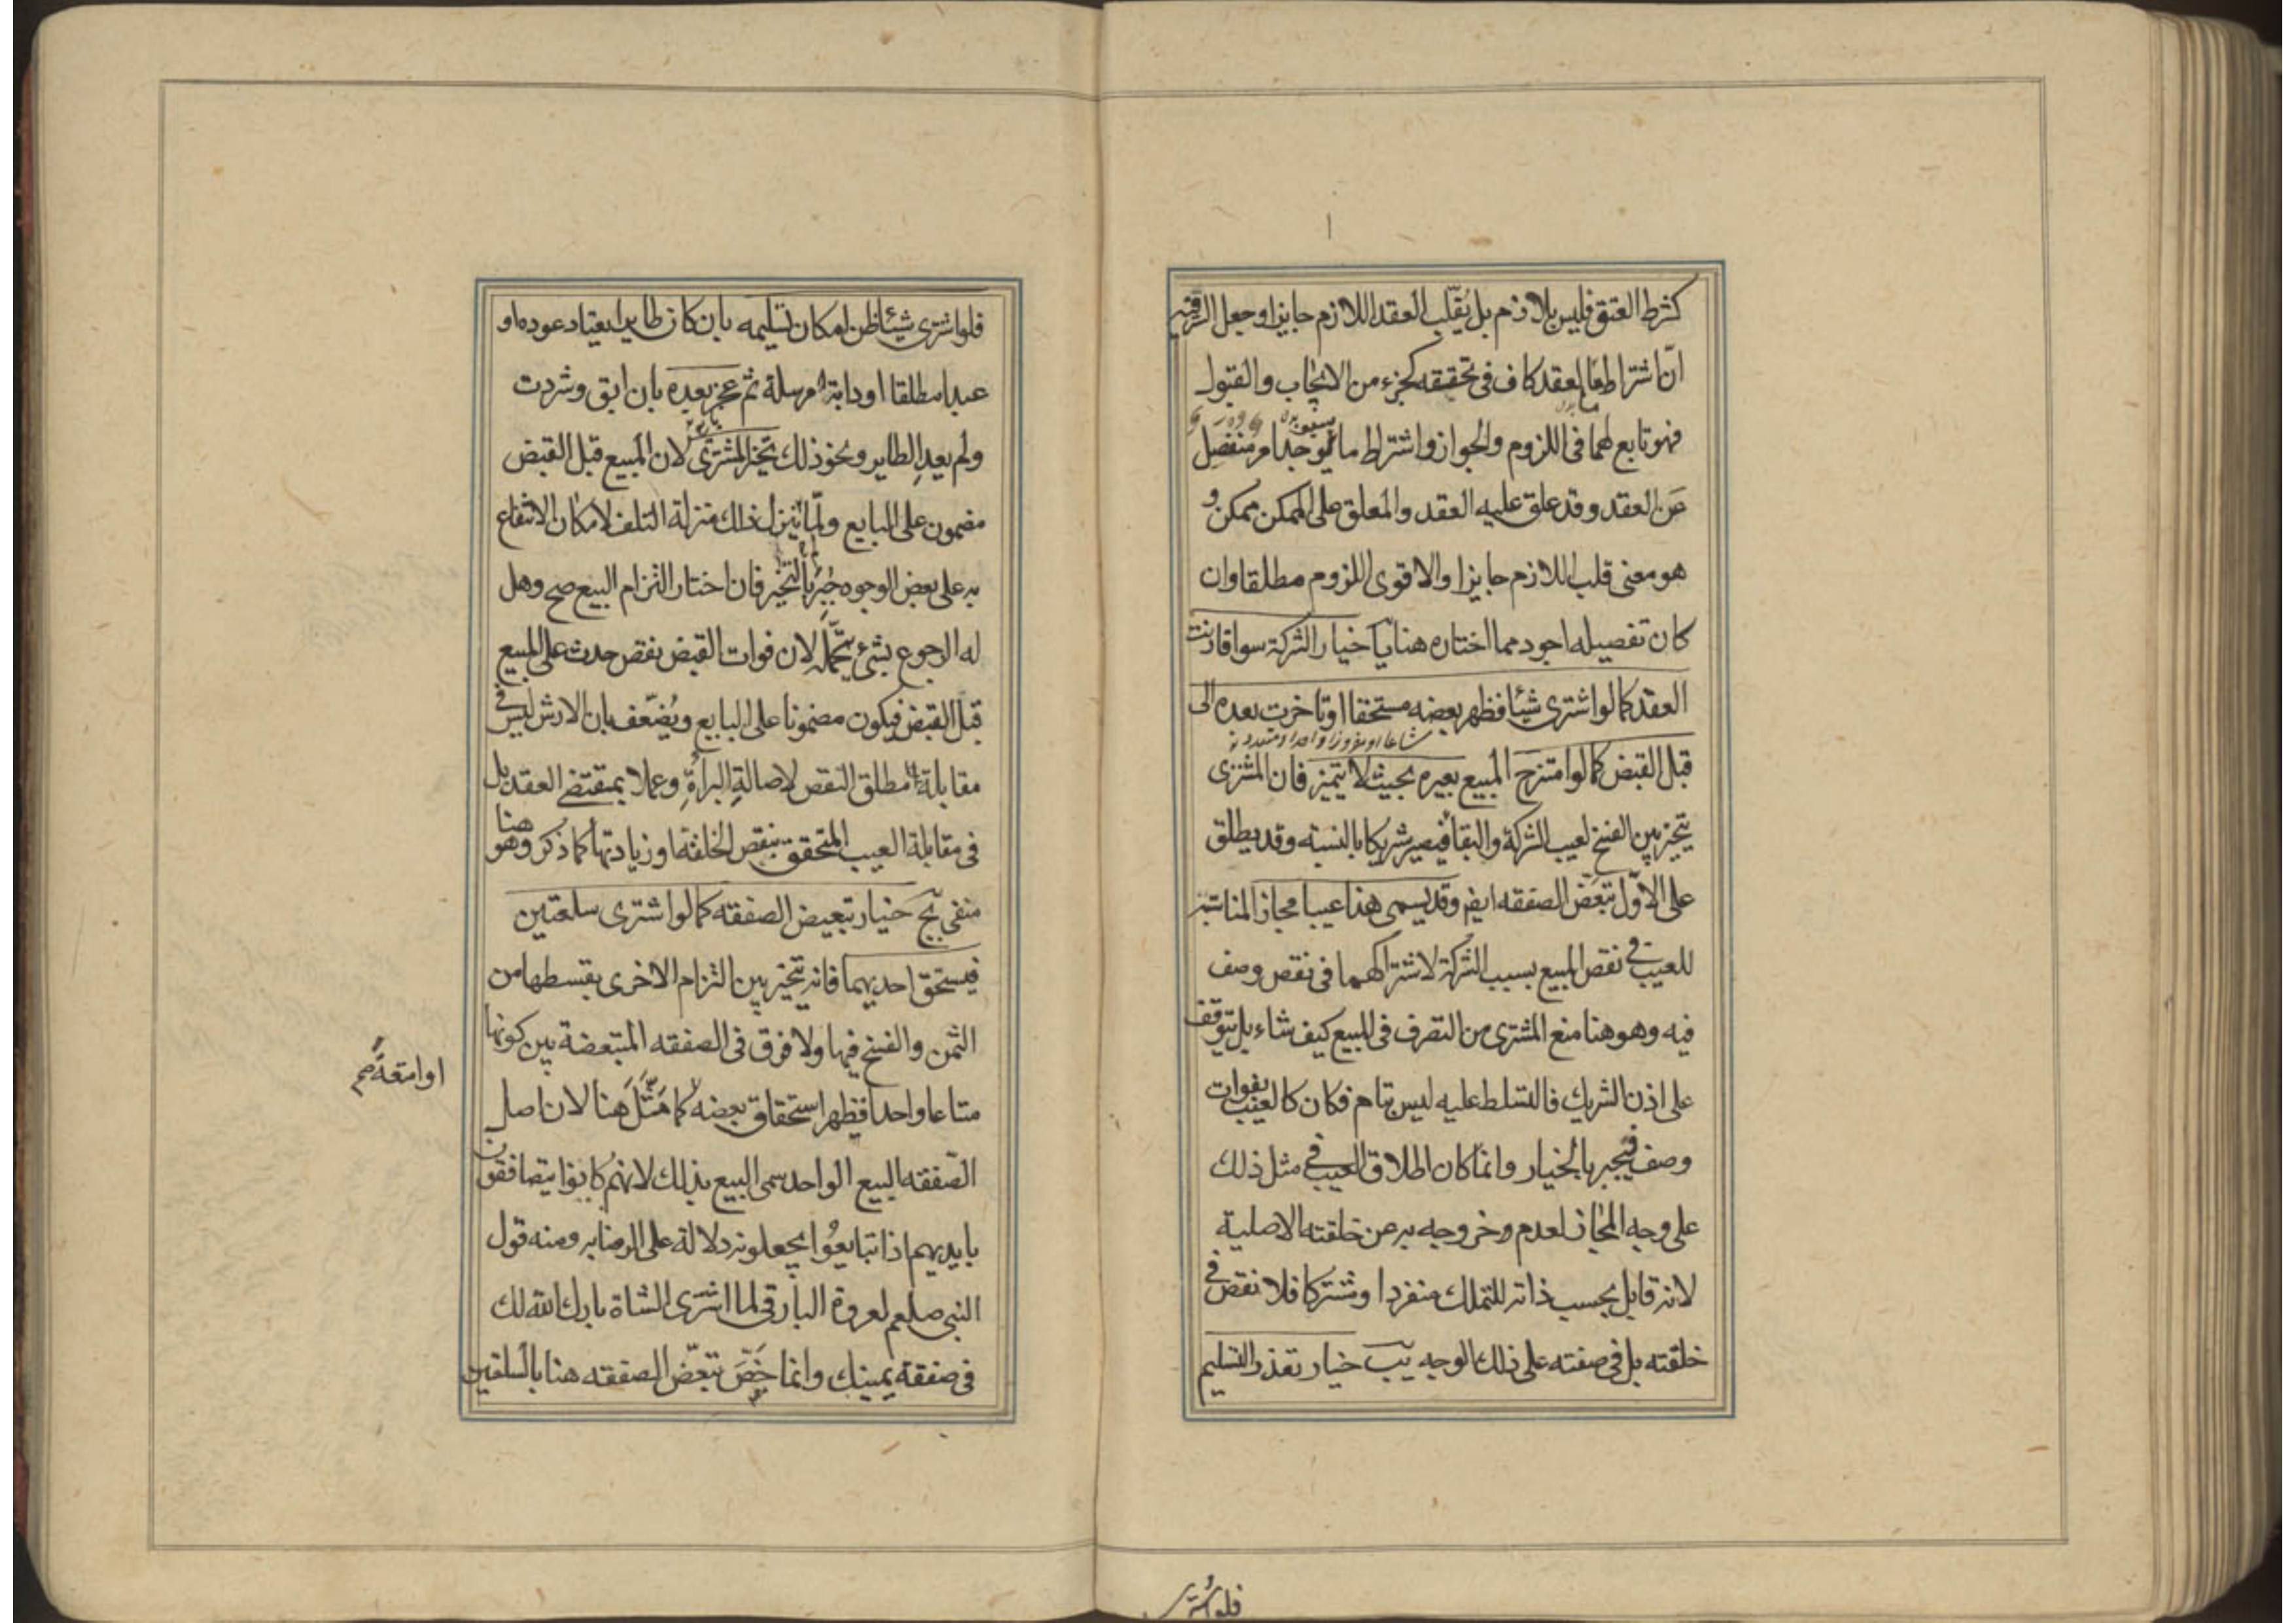 كشرط العتق فليس بلازم بل يقلب العقد اللازم جايزا وجعل السر فيه
ان اشتراط ما العقد كاف في تحققه كجزء من الايجاب والقبول
فهو تابع لهما في اللزوم والجواز واشتراط ما سيوجد امر منفصل
عن العقد وقد علق عليه العقد والمعلق على الممكن ممكن و
هو معنى قلب اللازم جايزا والاقوى اللزوم مطلقا وان
كان تفصيله اجود مما اختاره هنا يا خيار الشركة سوا قارنت
العقد كما لو اشترى شيئا فظهر بعضه مستحقا او تاخرت بعده الى
قبل القبض كما لو امتزج المبيع بغيره بحيث لا يتميز فان المشتري
يتخير بين الفسخ لعيب الشركة والبقا فيصير شريكا بالنسبه وقد يطلق
على الاول تبعض الصفقه ايضا وقد يسمى هذا عيبا مجازا لمناسبته
للعيب في نقص المبيع بسبب الشركة لاشتراكهما في نقص وصف
فيه وهو هنا منع المشتري من التصرف في المبيع كيف شاء بل يتوقف
على اذن الشريك فالتسلط عليه ليس بتام فكان كالعيب بفوات
وصف فيجبر بالخيار وانما كان اطلاق العيب في مثل ذلك
على وجه المجاز لعدم خروجه به عن خلقته الاصلية
لانه قابل بحسب ذاته للتملك منفردا ومشتركا فلا نقص في
خلقته بل في صفته على ذلك الوجه يب خيار تعذر التسليم
فلو اشترى
فلو اشترى شيئا ظن امكان تسليمه بان كان طايرا يعتاد عوده او
عبدا مطلقا او دابة مرسلة ثم عجز بعده بان ابق وشردت
ولم يعد الطاير ونحو ذلك تخير المشتري لان المبيع قبل القبض
مضمون على البايع ولما لم ينزل ذلك منزلة التلف لامكان الانتفاع
به على بعض الوجوه جبر بالتخير فان اختار التزام البيع صح وهل
له الرجوع بشيء يحتمله لان فوات القبض نقص حدث على المبيع
قبل القبض فيكون مضمونا على البايع ويضعف بان الارش ليس في
مقابلة مطلق النقص لاصالة البراءة وعملا بمقتضى العقد بل
في مقابلة العيب المتحقق بنقص الخلقة او زيادتها كما ذكر وهو هنا
منفى يج خيار تبعيض الصفقه كما لو اشترى سلعتين
فيستحق احديهما فانه يتخير بين التزام الاخرى بقسطها من
الثمن والفسخ فيها ولا فرق في الصفقه المتبعضة بين كونها
متاعا واحدا فظهر استحقاق بعضه لا كما مثل هنا لان اصل
او امتعة صح
الصفقه البيع الواحد سمى البيع بذلك لانهم كانوا يتصافقون
بايديهم اذا تبايعوا يجعلونه دلالة على الرضا به ومنه قول
النبي صلعم لعروة البارقي لما اشترى الشاة بارك الله لك
في صفقة يمينك وانما خص تبعض الصفقه هنا بالسلعتين